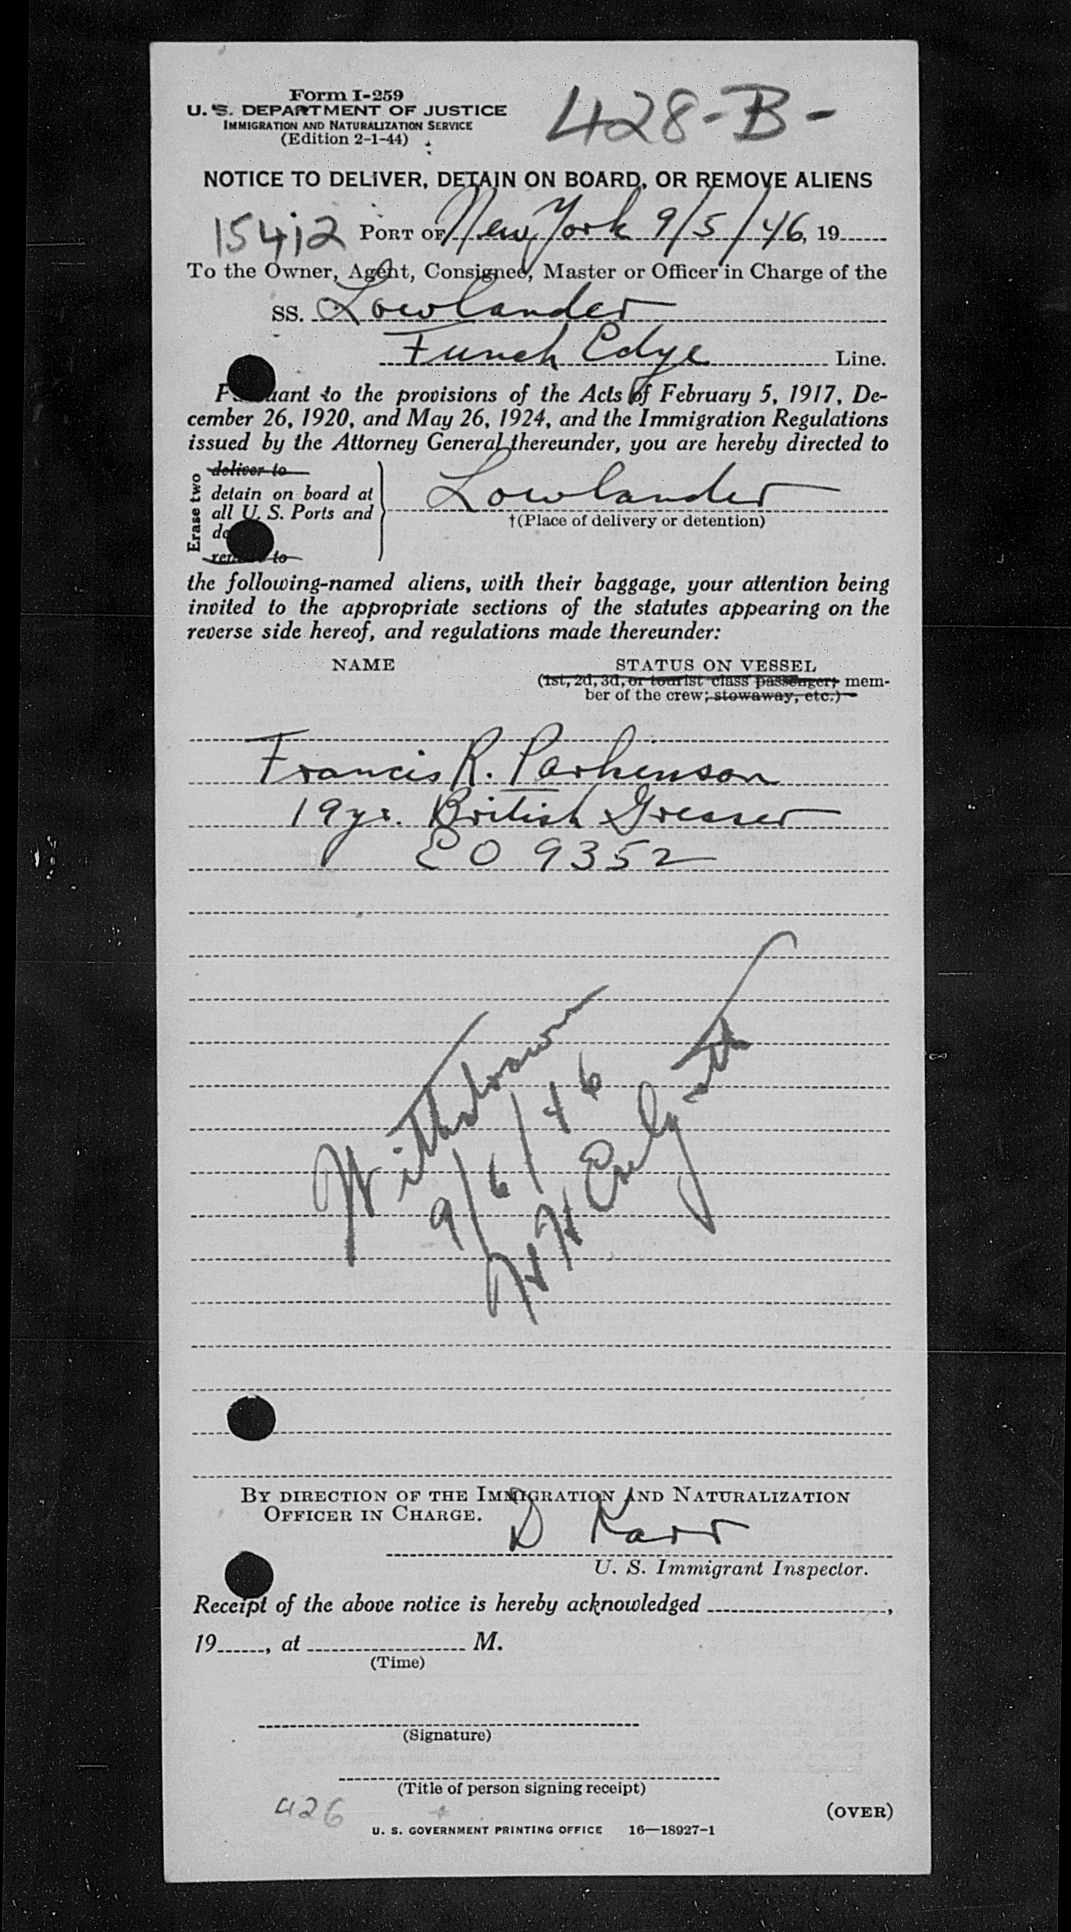 Form I-259
428-B-
U. S. DEPARTMENT OF JUSTICE
IMMIGRATION AND NATURALIZATION SERVICE
(Edition 2-1-44)
NOTICE TO DELIVER, DETAIN ON BOARD, OR REMOVE ALIENS
15412 PORT OF New York 9/5/46, 19
To the Owner, Agent, Consignee, Master or Officer in Charge of the
SS. Lowlander
Funch Edye Line.
Pursuant to the provisions of the Acts of February 5, 1917, De-
cember 26, 1920, and May 26, 1924, and the Immigration Regulations
issued by the Attorney General thereunder, you are hereby directed to
Erase two
deliver to
detain on board at
all U. S. Ports and
remove to
Lowlander
†(Place of delivery or detention)
the following-named aliens, with their baggage, your attention being
invited to the appropriate sections of the statutes appearing on the
reverse side hereof, and regulations made thereunder:
NAME STATUS ON VESSEL
(1st, 2d, 3d, or tourist class passenger; mem-
ber of the crew; stowaway, etc.)
Francis R. Parkinson
19 yr. British Greaser
EO 9352
Withdrawn
9/6/46
By direction of the Immigration and Naturalization
Officer in Charge.
D Karr
U. S. Immigrant Inspector.
Receipt of the above notice is hereby acknowledged ,
19 , at M.
(Time)
(Signature)
(Title of person signing receipt)
426
(OVER)
U. S. GOVERNMENT PRINTING OFFICE 16—18927-1